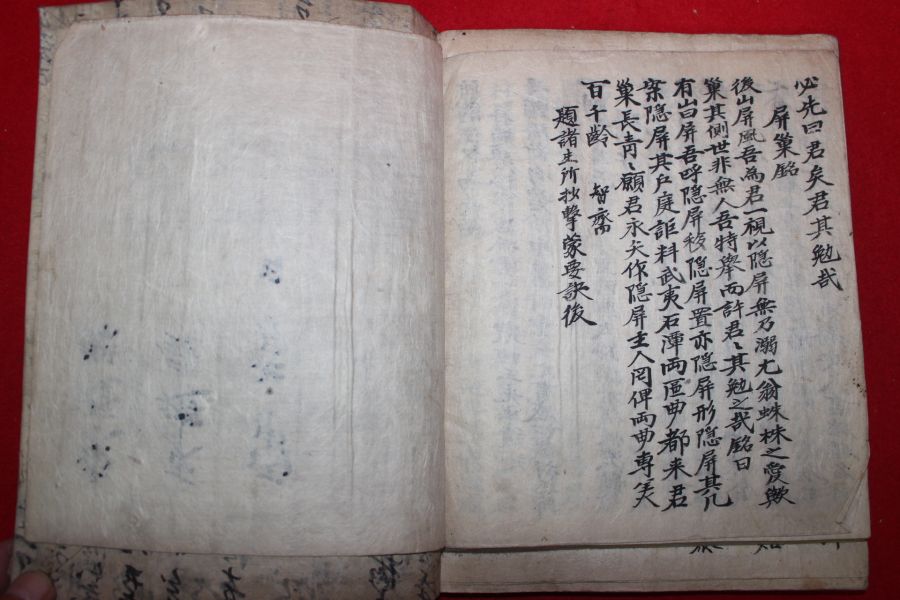 必先曰君矣君其勉哉
屏巢銘
後山屏風吾為君一視以隐屏無乃溺尤翁蛛株之愛歟
巢其側世非無人吾特舉而許君〻其勉之哉銘曰
有山曰屏吾呼隐屏移隐屏置亦隐屏形隐屏其几
案隐屏其戶庭詎料武夷石潭両區曲都来君
巢長靑〻願君永矢作隐屏主人罔俾両曲專美
百千齡 智齋
題諸生所抄擊蒙要訣後